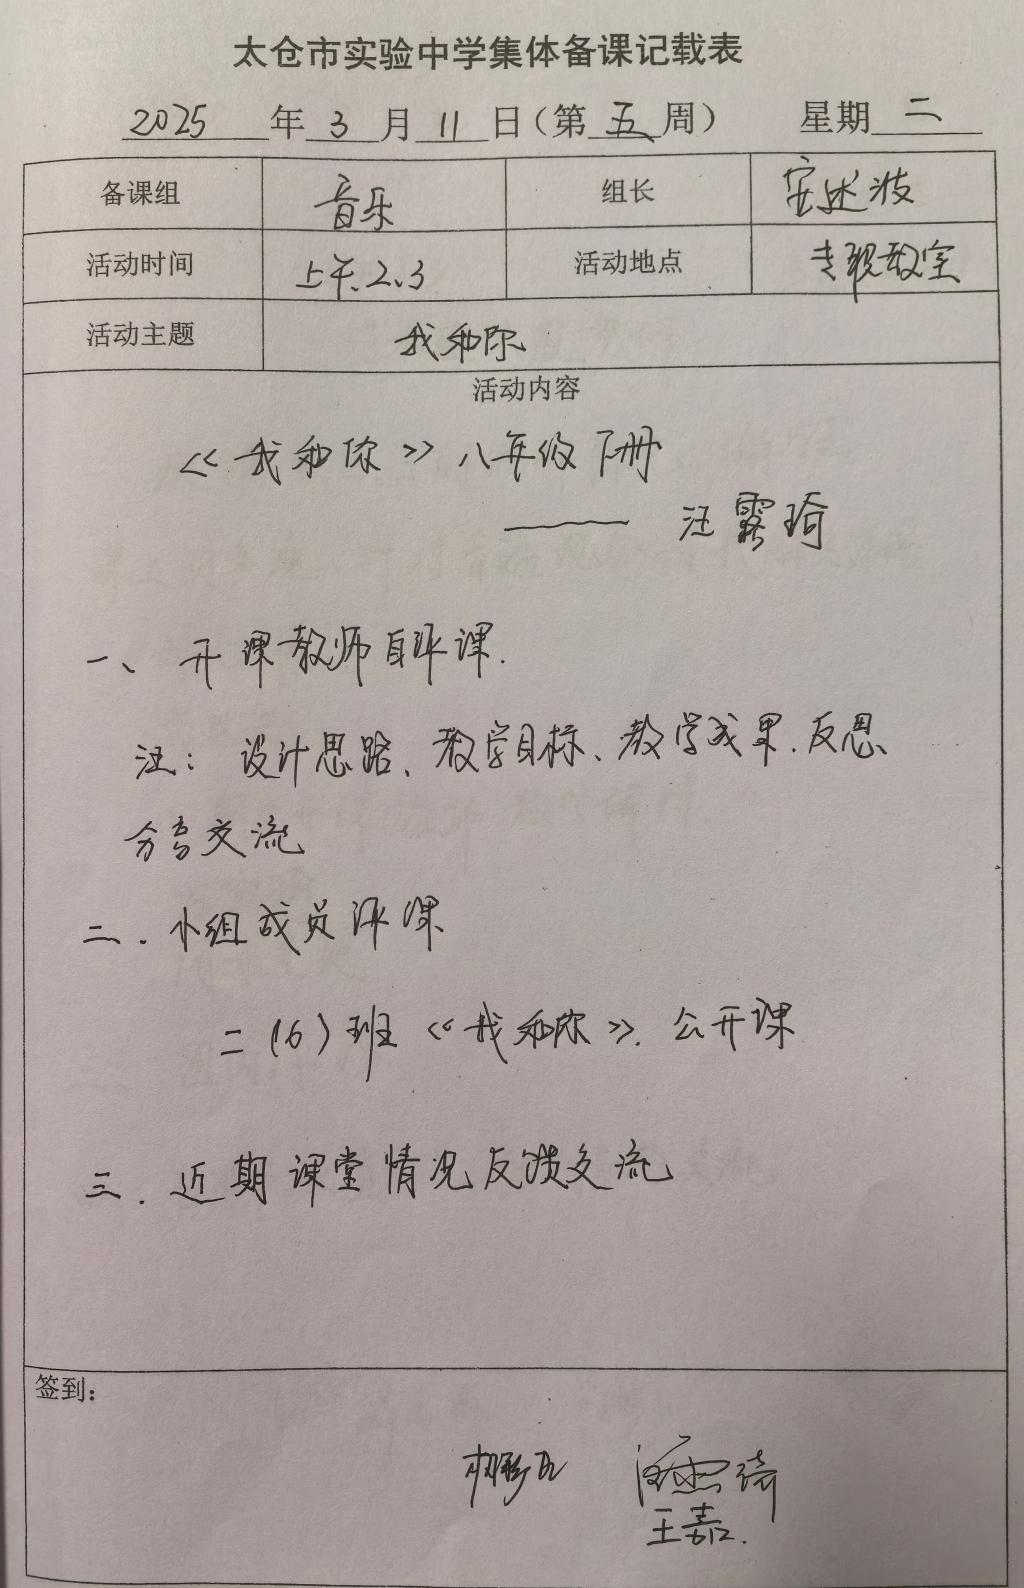 太仓市实验中学集体备课记载表
2025 年 3 月 11 日（第 五 周） 星期 二
备课组 音乐 组长 安述波
活动时间 上午、2、3 活动地点 专职教室
活动主题 我和你
活动内容
《我和你》八年级下册
—— 汪露琦
一、开课教师自评课.
汪：设计思路、教学目标、教学成果.反思、
分享交流
二．小组成员评课
二（6）班《我和你》.公开课
三．近期课堂情况反馈交流
签到：
王嘉.